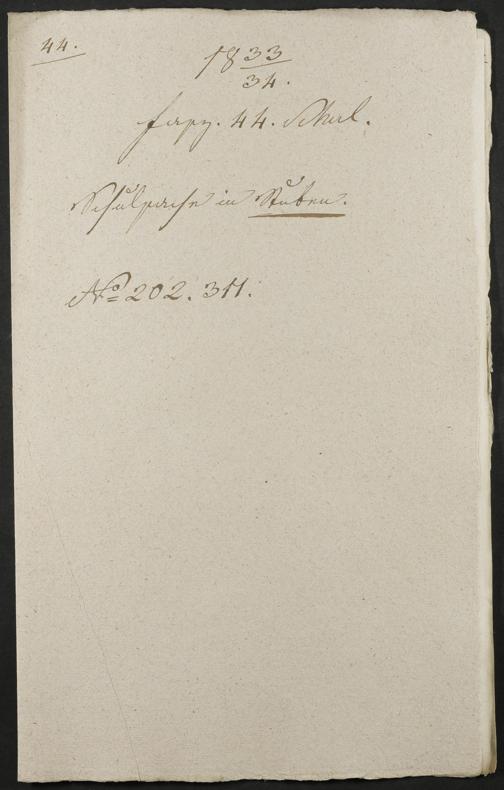 44.
1833
34.
fasz. 44. Schul.
Schulsache in Stuben.
No 202. 311.